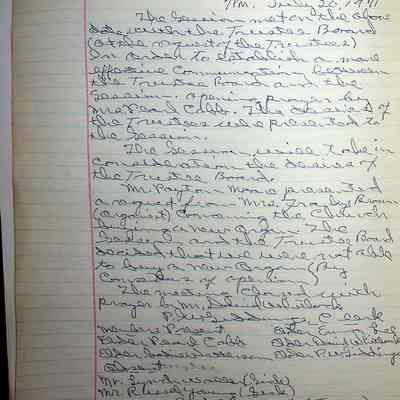 7PM. July 20, 1971
The Session met on the above
date with the Trustee Board
(at the request of the Trustees)
In order to establish a more
effective Communication between
the Trustee Board and the
Session. opening prayer by
Mrs Pearl Cobb. The desires of
the Trustees were presented to
the Session.
The Session will take in
consideration the desires of
the Trustee Board.
Mr. Payton Moore presented
a request from Mrs.
(organist) Concerning the Church
buying a new organ. The
Session and the Trustee Board
decided that we were not able
to buy a new organ (By
of opinion)
The meeting closed with
prayer by Mr.
C. Clerk
Members Present
Elder Pearl Cobb
Elder
Absent
Mr. (Sick)
Mr. Young (Sick)